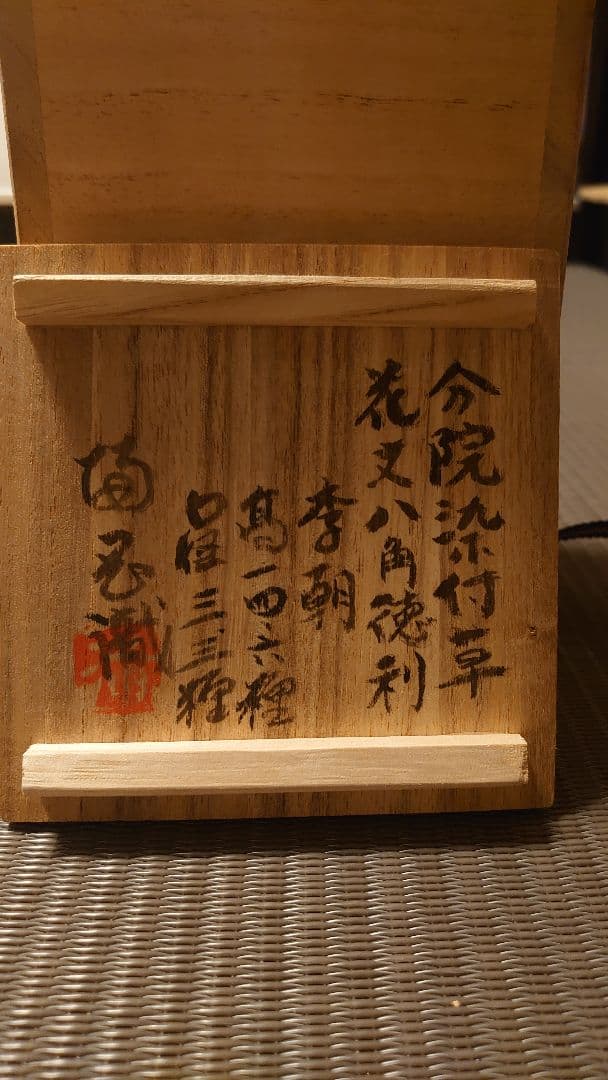 分院染付草
花文八角徳利
李朝
高一四六糎
口径三三糎